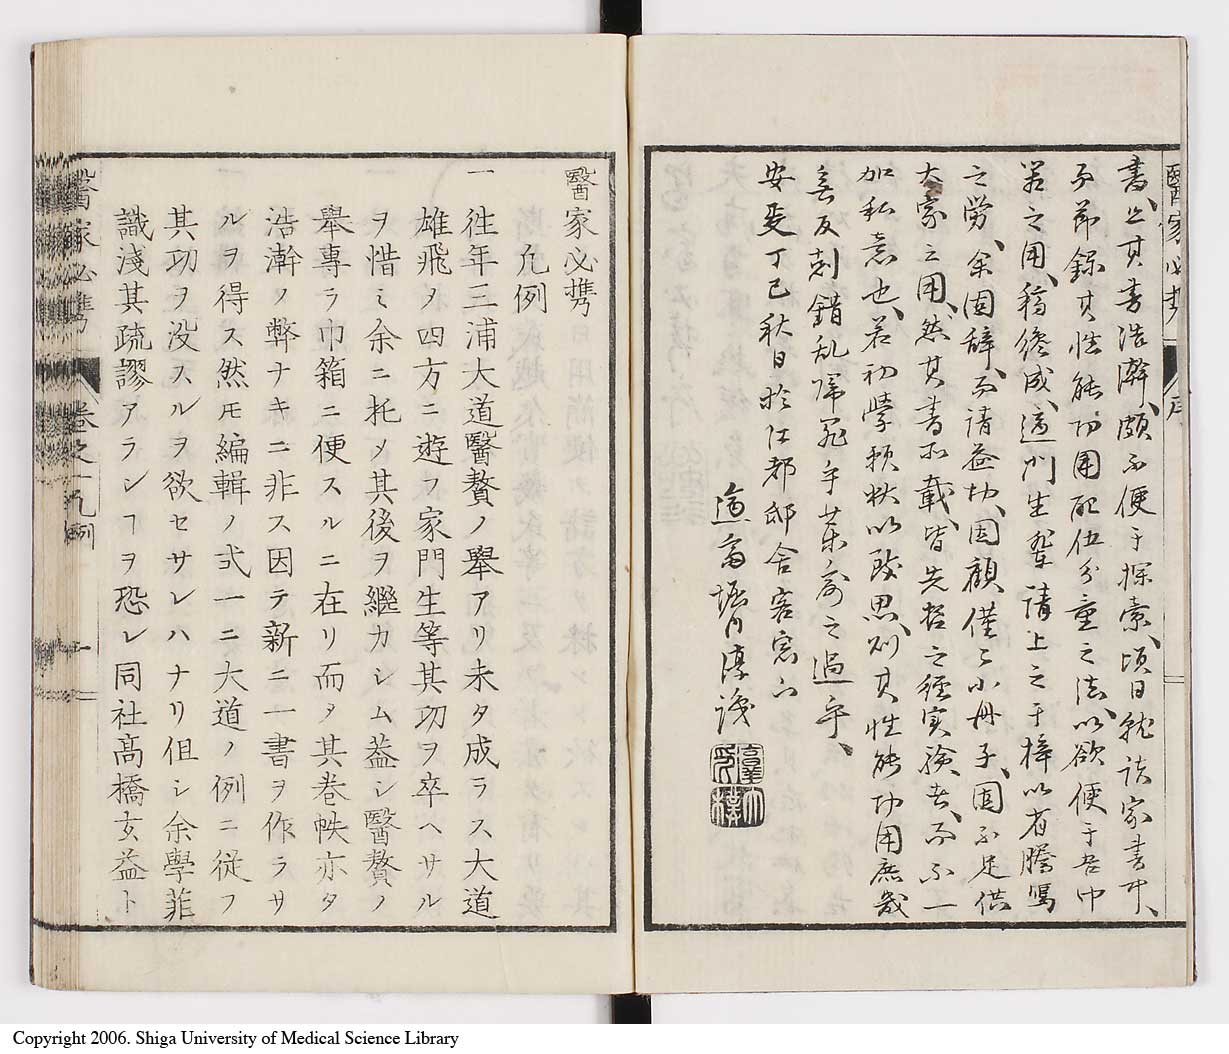 書、且其書浩瀚、頗不便于探索、頃日就諸家書中、
不節錄其性能功用配伍分量之法、以欲便于吾中
若之用、稿終成、適門生輩請上之于梓以省謄寫
之勞、余固辭、不請益切、因顧僅々小冊子、固不足供
大家之用、然其書所載、皆先哲之經実驗者、而不一
加私意也、若初學賴此以致思、別其性能功用庶幾
無反刺錯乱
安政丁巳秋日於江都邸舍客窓下
適齋堀内淳誌
醫家必携
凡例
一 往年三浦大道醫贅ノ舉アリ未タ成ラス大道
雄飛ヲ四方ニ遊フ家門生等其功ヲ卒ヘサル
ヲ惜ミ余ニ托〆其後ヲ繼カシム蓋シ醫贅ノ
舉專ラ巾箱ニ便スルニ在リ而ヲ其卷帙亦タ
浩瀚ノ弊ナキニ非ス因テ新ニ一書ヲ作ラサ
ルヲ得ス然モ編輯ノ式一ニ大道ノ例ニ從フ
其功ヲ没スルヲ欲セサレハナリ但シ余學菲
識淺其疏謬アランヿヲ恐レ同社高橋玄益ト
醫家必携 卷之一凡例 一
Copyright 2006. Shiga University of Medical Science Library